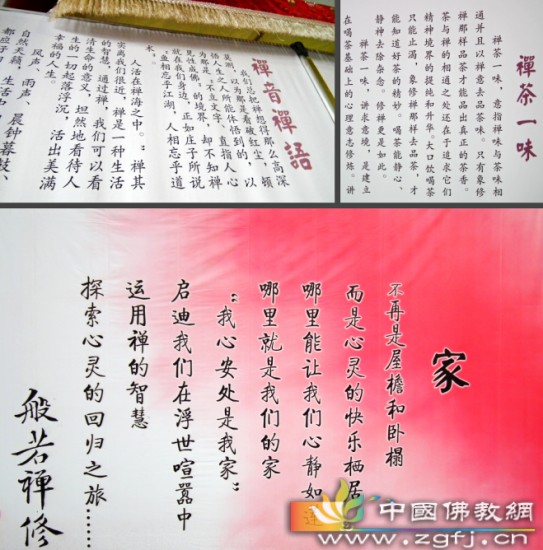 禪音禪語
我们总把禅想得那么高深
莫测，以为那是看破红尘，顿
悟人生之人所能体悟到的，以
为那是不立文字，直指人心
见性成佛的境界，却不知禅
就在我们身边，正如庄子所说
“鱼相忘乎江湖，人相忘乎道
术。”
人活在禅海之中。”禅其
实离我们很近，禅是一种生活
的智慧，通过禅，我们可以看
清生命的意义，坦然地看待人
生的一切起落浮沉，活出美满
幸福的人生。
风声、雨声、晨钟暮鼓、
自然天籁，生活中
禪茶一味
禅茶一味，意指禅味与茶味相
通并且以禅意去品茶味。只有象修
禅那样品茶才能品出真正的茶香。
茶与禅的相通之处还在于追求它们
精神境界的提纯和升华。大口饮喝茶
只能止渴，象修禅那样去品茶，才
能知道好茶的精妙。喝茶能静心、
静神去除杂念，修禅更是如此。
禅茶一味，讲求意境，是建立
在喝茶基础上的心理意志修炼。讲
家
不再是屋檐和卧榻
而是心灵的快乐栖居
哪里能让我们心静如
哪里就是我们的家
“我心安处是我家”
启迪我们在浮世喧嚣中
运用禅的智慧
探索心灵的回归之旅……
般若禅修
中國佛教網
www.zgfj.cn